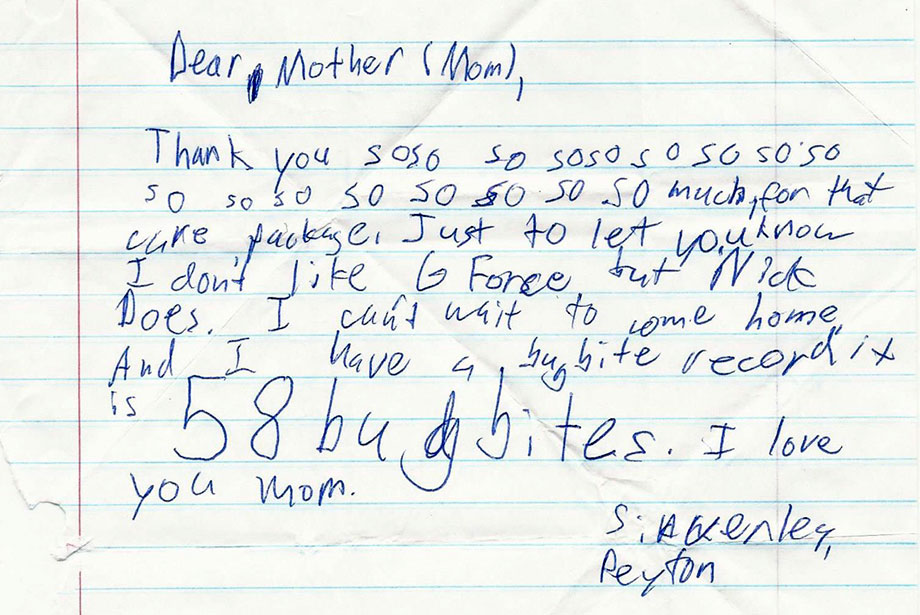 Dear, Mother (Mom),
Thank you soso so soso so so so so
so so so so so so so so much, for that
care package. Just to let you know
I don't like G Force but Nick
Does. I can't wait to come home
And I have a bug bite record it
is 58 bug bites. I love
you mom.
Peyton